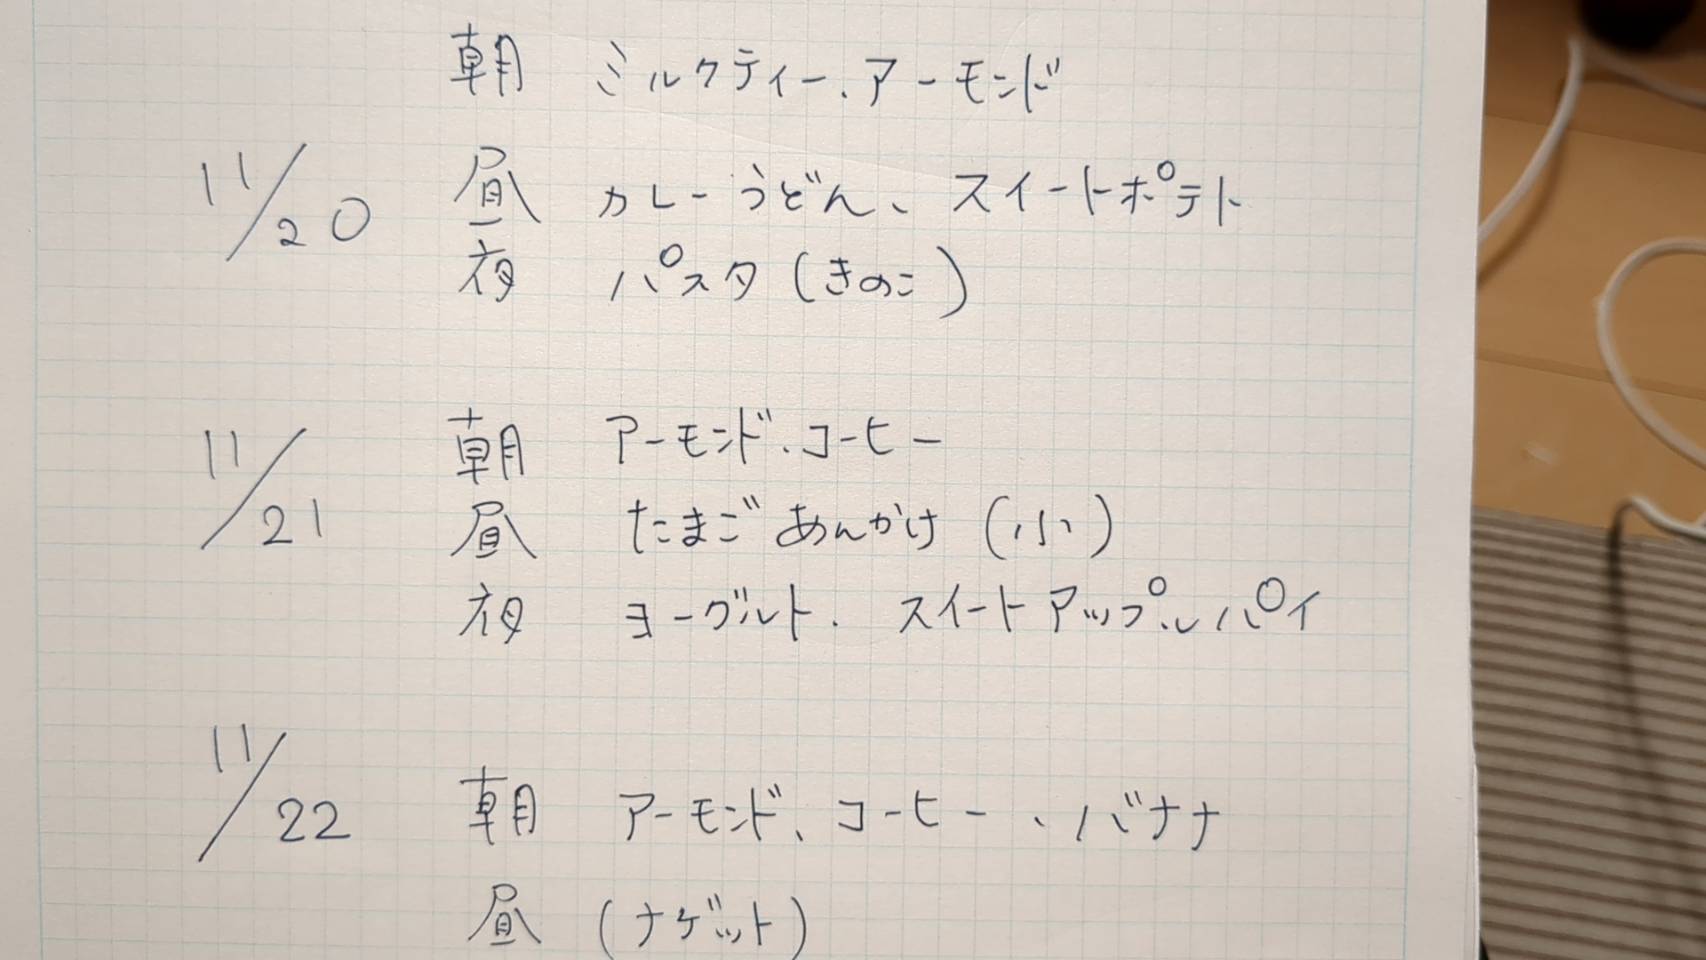 朝 ミルクティー、アーモンド
11/20 昼 カレーうどん、スイートポテト
夜 パスタ(きのこ)
11/21 朝 アーモンド、コーヒー
昼 たまごあんかけ(小)
夜 ヨーグルト、スイートアップルパイ
11/22 朝 アーモンド、コーヒー、バナナ
昼 (ナゲット)